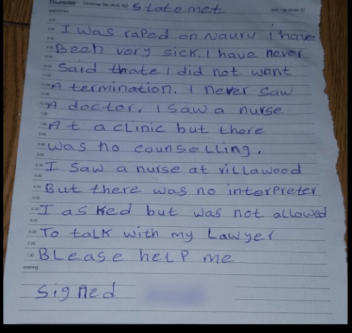 Thursday
Statemet
I was raped on Nauru i have
Been very sick. I have never
Said thate I did not want
A termination. I never saw
A doctor. I saw a nurse
At a clinic but there
was no counselling.
I saw a nurse at villawood
But there was no interpreter
I asked but was not allowed
To talk with my Lawyer
BLease heLP me
evening
Signed